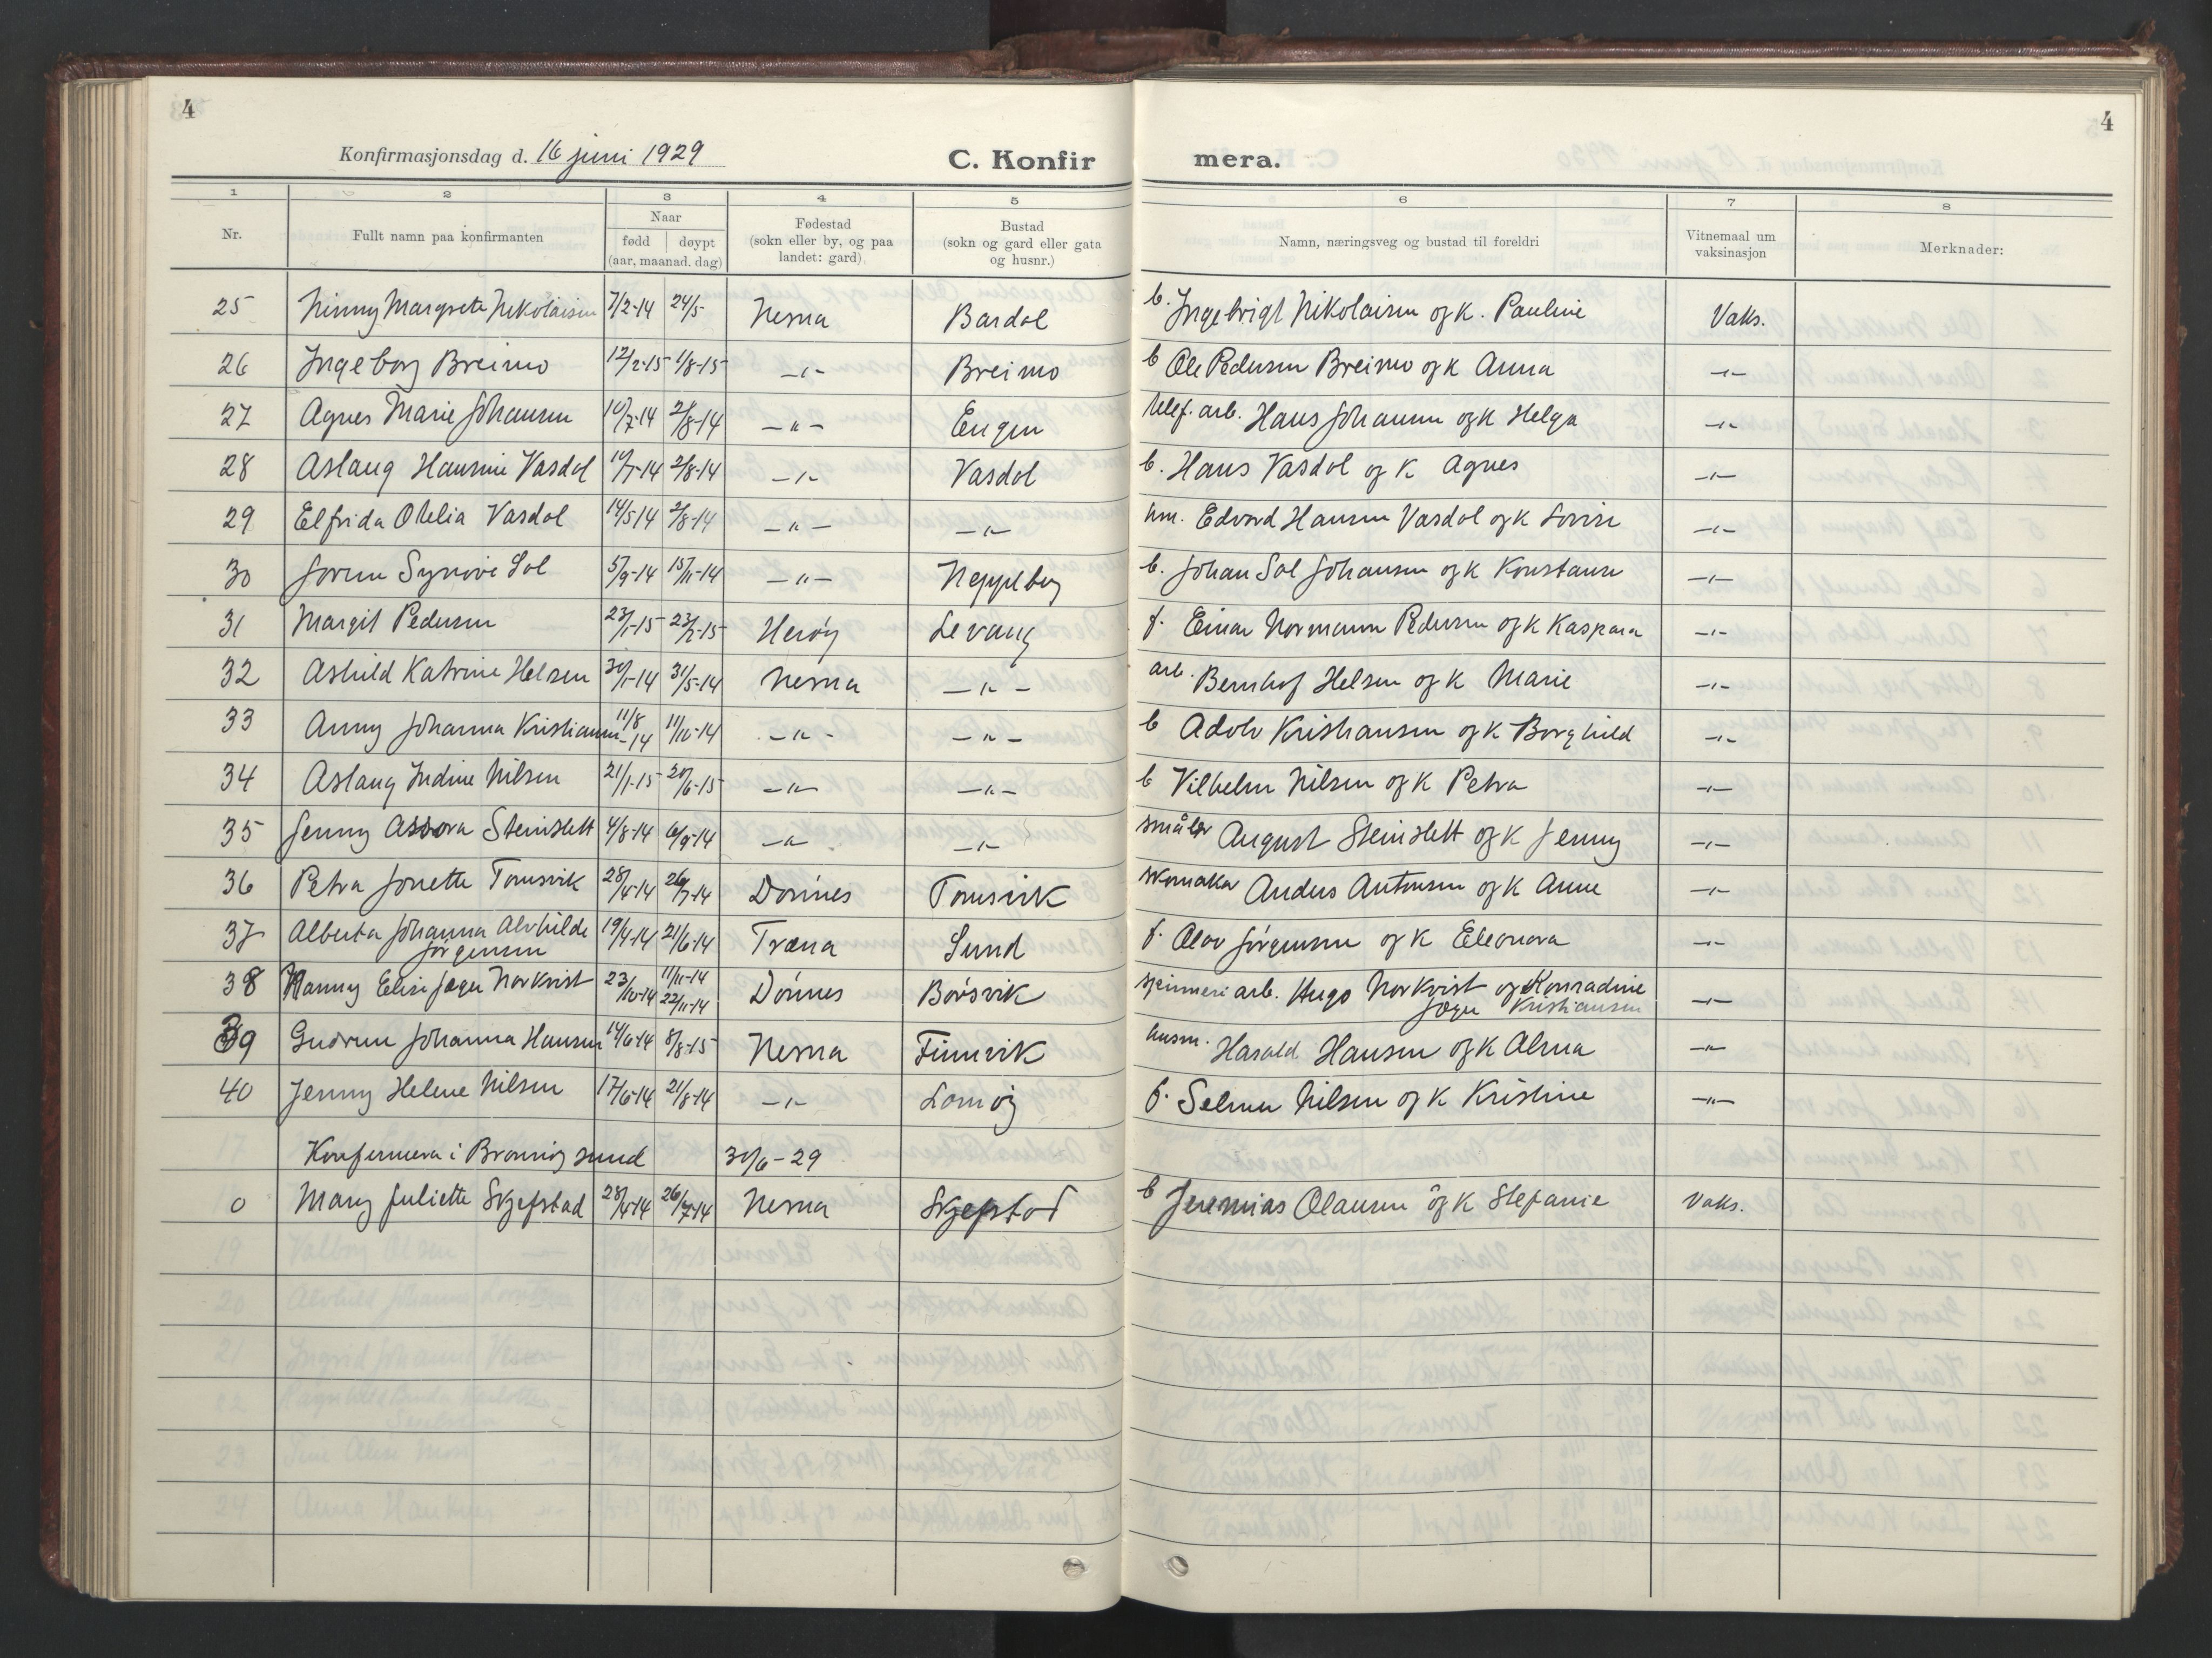 4
4
Konfirmasjonsdag d. 16 juni 1929
C. Konfir mera.
1 2 3 4 5 6 7 8
Nr. Fullt namn paa konfirmanten Naar fødd døypt (aar, maanad. dag) Fødestad (sokn eller by, og paa landet: gard) Bustad (sokn og gard eller gata og husnr.) Namn, næringsveg og bustad til foreldri Vitnemaal um vaksinasjon Merknader:
25 Ninny Margrete Nikolaisen 7/2-14 24/5- Nesna Bardal b. Ingebrigt Nikolaisen og k. Pauline Vaks.
26 Ingeborg Breimo 12/2-15 1/8-15 -"- Breimo b Ole Pedersen Breimo og k Anna -"-
27 Agnes Marie Johansen 10/7-14 2/8-14 -"- Engen telef. arb. Hans Johansen og k Helga -"-
28 Aslaug Hansine Vasdal 10/7-14 2/8-14 -"- Vasdal b. Hans Vasdal og k Agnes -"-
29 Elfrida Otelia Vasdal 14/5 14 2/8-14 -"- -"- hm. Edvard Hansen Vasdal og k Lovise -"-
30 Jorun Synøve Sol 5/9-14 15/11-14 -"- Neppelberg b. Johan Sol Johansen og k Konstanse -"-
31 Margit Pedersen 23/1-15 23/2-15 Herøy Levang f. Einar Normann Pedersen og k Kaspara -"-
32 Ashild Katrine Helsen 30/1-14 31/5-14 Nesna -"- arb. Bernhof Helsen og k Marie -"-
33 Anny Johanna Kristiansen 11/8-14 11/10-14 -"- -"- b Adolv Kristiansen og k Borghild -"-
34 Aslaug Indine Nilsen 21/1-15 20/6-15 -"- -"- b Vilhelm Nilsen og k Petra -"-
35 Jenny Assora Steinslett 4/8-14 6/9-14 -"- -"- småbr August Steinslett og k Jenny -"-
36 Petra Jonette Tomsvik 28/4-14 26/7-14 Dønnes Tomsvik skomaker Anders Antonsen og k Anne -"-
37 Alberta Johanna Alvhilde Jørgensen 19/4-14 21/6-14 Træna Sund f. Olav Jørgensen og k Eleonora -"-
38 Hanny Elise Jæger Norkvist 23/10-14 11/11-14 22/11-14 Dønnes Børsvik spinneri arb. Hugo Norkvist og Konradine Jæger Kristiansen -"-
39 Gudrun Johanna Hansen 14/6-14 8/8-15 Nesna Finnvik husm. Harald Hansen og k Alma -"-
40 Jenny Helene Nilsen 17/6-14 21/8-14 -"- Lomøy f. Selmer Nilsen og k Kristine -"-
Konfirmera i Brønnøysund 30/6-29
0 Mary Juliette Skjefstad 28/4-14 26/7-14 Nesna Skjefstad b Jeremias Olausen og k Stefanie Vaks.